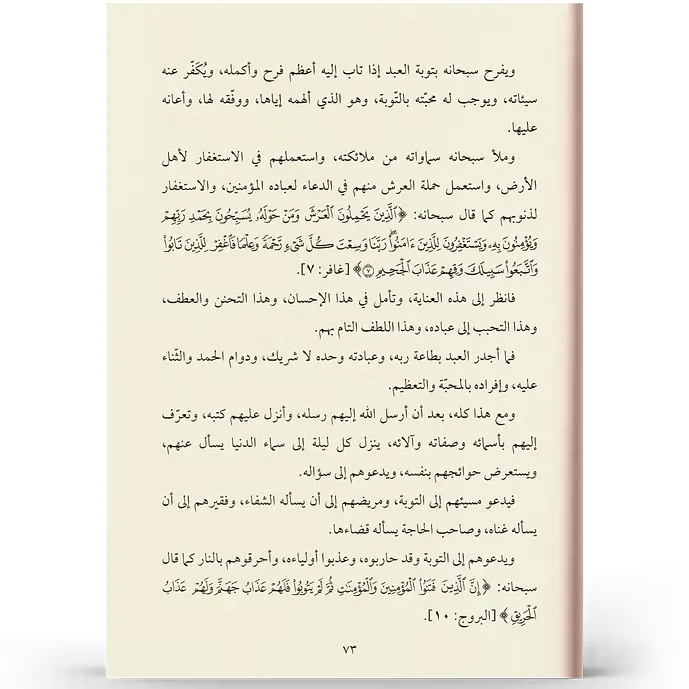 ويفرح سبحانه بتوبة العبد إذا تاب إليه أعظم فرح وأكمله، ويُكَفّر عنه
سيئاته، ويوجب له محبّته بالتّوبة، وهو الذي ألهمه إياها، ووفّقه لها، وأعانه
عليها.
وملأ سبحانه سماواته من ملائكته، واستعملهم في الاستغفار لأهل
الأرض، واستعمل حملة العرش منهم في الدعاء لعباده المؤمنين، والاستغفار
لذنوبهم كما قال سبحانه: ﴿ٱلَّذِينَ يَحْمِلُونَ ٱلْعَرْشَ وَمَنْ حَوْلَهُۥ يُسَبِّحُونَ بِحَمْدِ رَبِّهِمْ
وَيُؤْمِنُونَ بِهِۦ وَيَسْتَغْفِرُونَ لِلَّذِينَ ءَامَنُوا۟ۖ رَبَّنَا وَسِعْتَ كُلَّ شَىْءٍ رَّحْمَةً وَعِلْمًا فَٱغْفِرْ لِلَّذِينَ تَابُوا۟
وَٱتَّبَعُوا۟ سَبِيلَكَ وَقِهِمْ عَذَابَ ٱلْجَحِيمِ ۝٧﴾ [غافر: ٧].
فانظر إلى هذه العناية، وتأمل في هذا الإحسان، وهذا التحنن والعطف،
وهذا التحبب إلى عباده، وهذا اللطف التام بهم.
فما أجدر العبد بطاعة ربه، وعبادته وحده لا شريك، ودوام الحمد والثّناء
عليه، وإفراده بالمحبّة والتعظيم.
ومع هذا كله، بعد أن أرسل الله إليهم رسله، وأنزل عليهم كتبه، وتعرّف
إليهم بأسمائه وصفاته وآلائه، ينزل كل ليلة إلى سماء الدنيا يسأل عنهم،
ويستعرض حوائجهم بنفسه، ويدعوهم إلى سؤاله.
فيدعو مسيئهم إلى التوبة، ومريضهم إلى أن يسأله الشفاء، وفقيرهم إلى أن
يسأله غناه، وصاحب الحاجة يسأله قضاءها.
ويدعوهم إلى التوبة وقد حاربوه، وعذبوا أولياءه، وأحرقوهم بالنار كما قال
سبحانه: ﴿إِنَّ ٱلَّذِينَ فَتَنُوا۟ ٱلْمُؤْمِنِينَ وَٱلْمُؤْمِنَٰتِ ثُمَّ لَمْ يَتُوبُوا۟ فَلَهُمْ عَذَابُ جَهَنَّمَ وَلَهُمْ عَذَابُ
ٱلْحَرِيقِ﴾ [البروج: ١٠].
٧٣